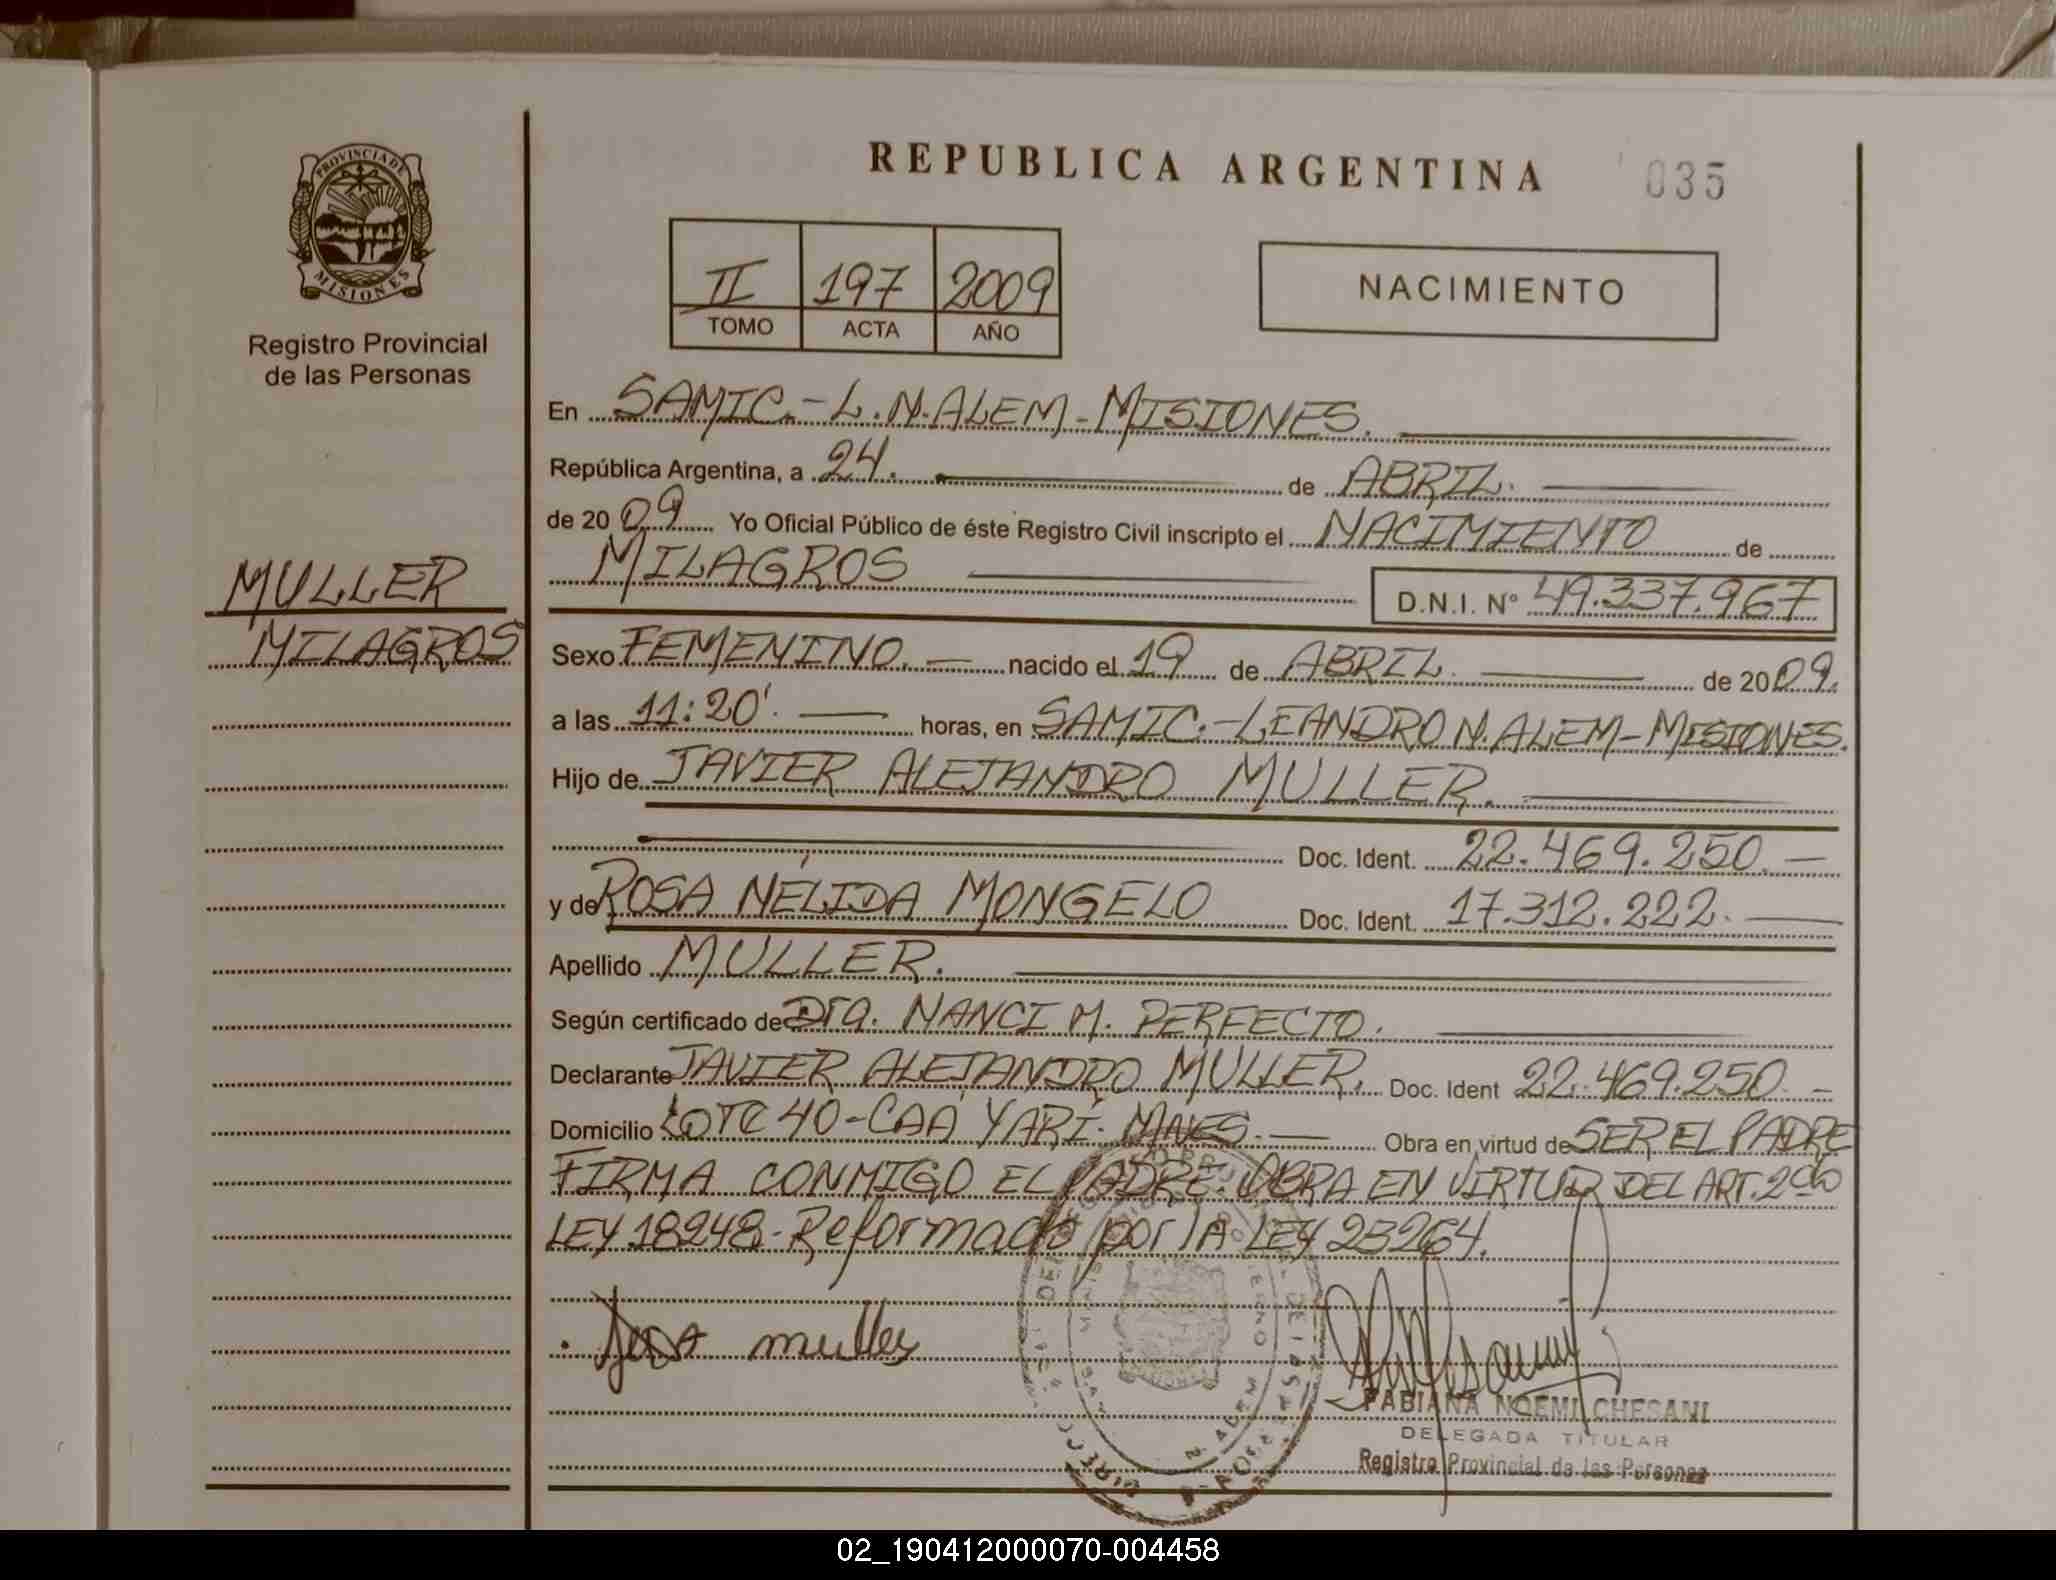 REPUBLICA ARGENTINA 035
PROVINCIA DE
MISIONES
Registro Provincial
de las Personas
II 197 2009
TOMO ACTA AÑO
NACIMIENTO
En SAMIC.-L.N.ALEM-MISIONES.
República Argentina, a 24. de ABRIL.
de 2009 Yo Oficial Público de éste Registro Civil inscripto el NACIMIENTO de
MILAGROS D.N.I. Nº 49.337.967
MULLER
MILAGROS
Sexo FEMENINO. nacido el 19 de ABRIL. de 2009.
a las 11:20'. horas, en SAMIC.-LEANDRO N.ALEM-MISIONES.
Hijo de JAVIER ALEJANDRO MULLER.
Doc. Ident. 22.469.250.
y de ROSA NÉLIDA MONGELO Doc. Ident. 17.312.222.
Apellido MULLER.
Según certificado de Dra. NANCI M. PERFECTO.
Declarante JAVIER ALEJANDRO MULLER. Doc. Ident 22.469.250.
Domicilio LOTE 40-CAÁ YARÍ. MNES. Obra en virtud de SER EL PADRE
FIRMA CONMIGO EL PADRE. OBRA EN VIRTUD DEL ART. 2do
LEY 18248-Reformado por lA LEY 23264.
muller
FABIANA NOEMI CHESANI
DELEGADA TITULAR
Registro Provincial de las Personas
02_190412000070-004458